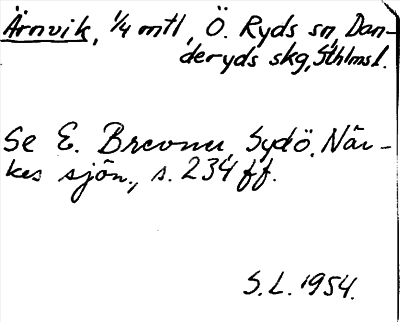 Ärnvik, 1/4 mtl, Ö. Ryds sn, Dan-
deryds skg, Sthlms l.
Se E. Brevner, Sydö. När-
kes sjön., s. 234 ff.
S.L. 1954.